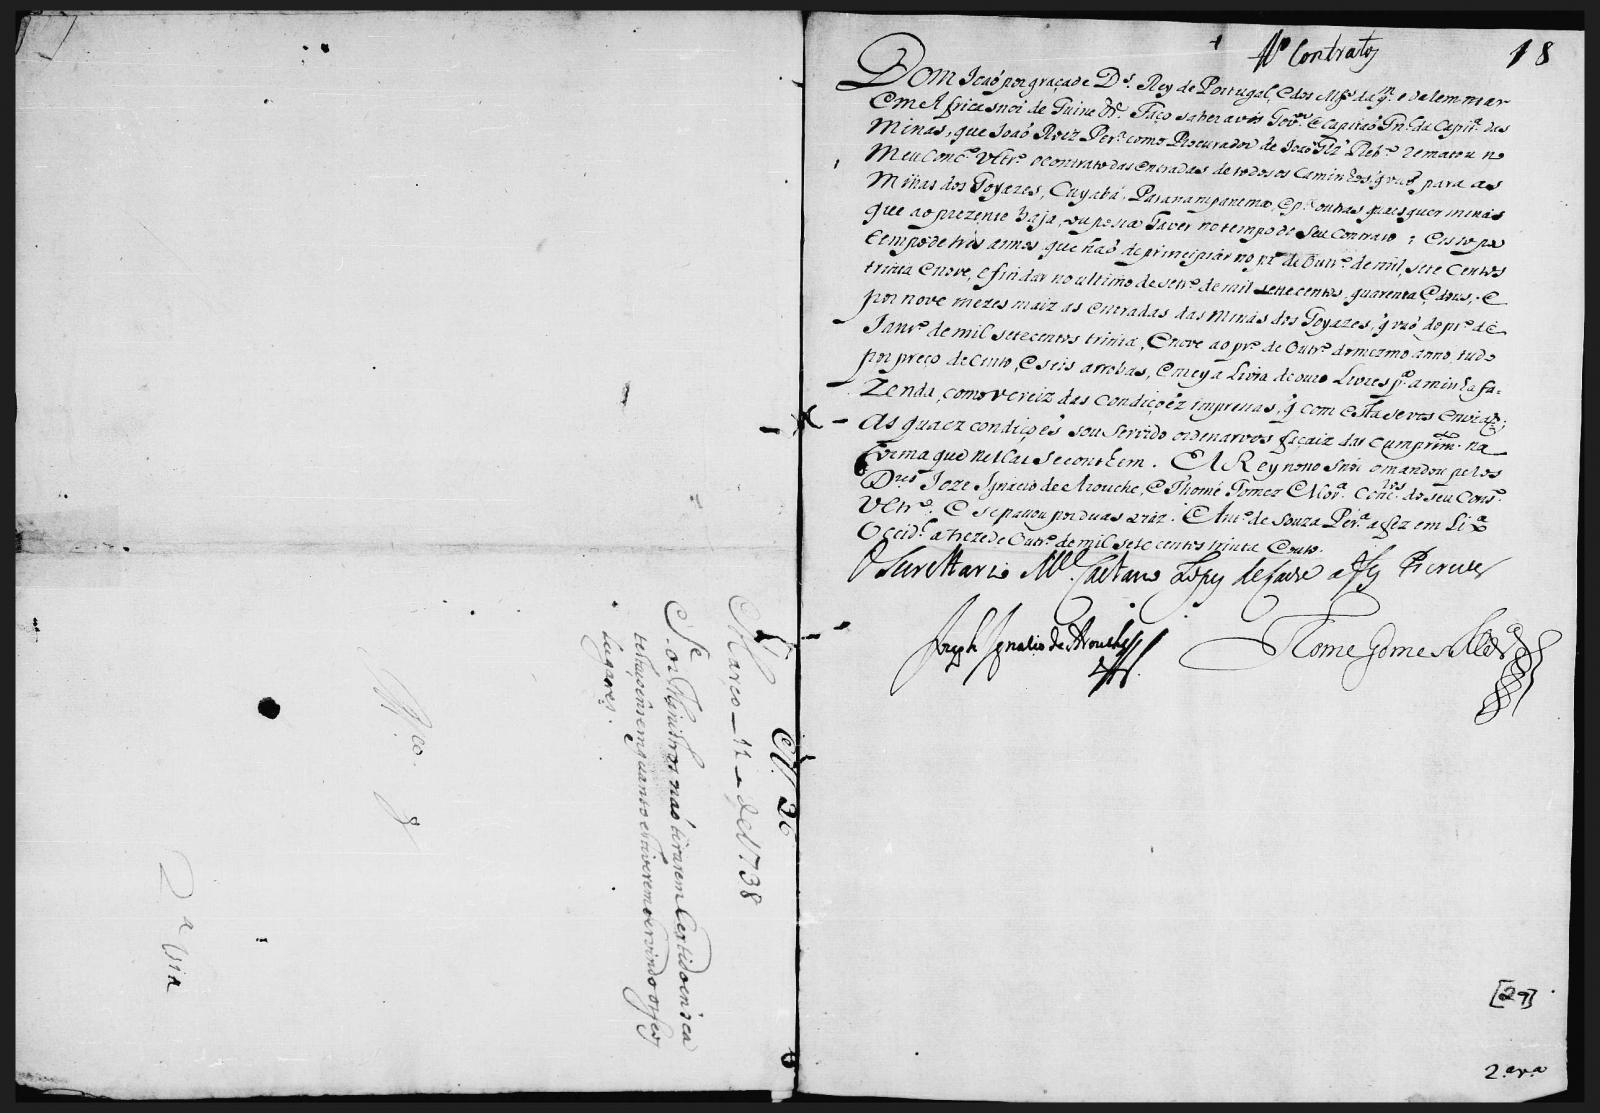 Março 11 de 1738
Se os Ministros não tirarem Certidoens ea
testaçoins emquanto estiverem servindo os seos
lugares.
N.co
8
2a via
Nº Contratos 18
Dom Joaõ por graça de Ds. Rey de Portugal, e dos Algs. daqm. e dalem mar
Em Africa snor de Guine &c. Faço saber a vós Govor. e Capitaõ Gnl. da Capnia. das
Minas, que Joaõ Roiz Perª como Procurador de Joaõ Glz Rebº Rematou no
Meu Consº Ultrº o contrato das entradas de todos os Caminhos q vaõ para as
Minas dos Goyazes, Cuyabá, Paranampanema, e pª outras quaesquer minas
que ao prezente haja, ou possa haver no tempo do seu Contrato; e isto por
tempo de tres annos, que haõ de principiar no prº de Outrº de mil, sete centos
trinta e nove, e findar no ultimo de setrº de mil sette centos, quarenta e dous, e
por nove mezes maiz as entradas das Minas dos Goyazes, q vaõ do prº de
Janrº de mil sete centos trinta, e nove ao prº de Outrº do mezmo anno, tudo
por preço de cento, e seis arrobas, e meya Livra de ouro Livres pª a minha fa-
zenda, como vereiz das condiçoẽz impressas, q com esta se vos enviaõ;
As quaez condiçoẽs sou servido ordenarvos façaiz dar cumprimto. na
forma que nellas se conthem. El Rey nosso snõr o mandou pelos
Dres. Joze Ignacio de Arouche, e Thomé Gomez Morª Consos. do seu Consº
Ultrº e se passou por duas viaz. Antº de Souza Perª a fez em Lxª
Occidal. a treze de Outrº de mil sete centos trinta e outo.
O Secrettario Mel. Caetano Lopes de Lavre a fez escrever
Joseph Ignacio de Arouche
Thome Gomes Morª
[27]
2.ª v.ª